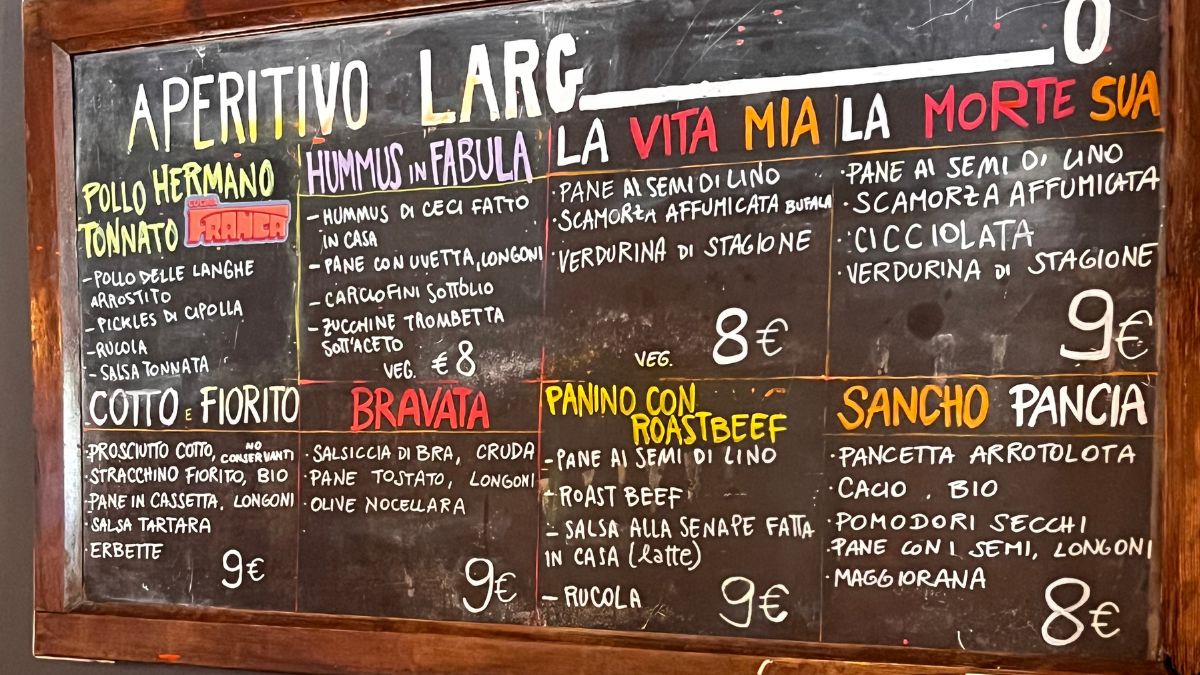 APERITIVO LARG_____O
POLLO HERMANO
TONNATO
CUCINA
FRANCA
- POLLO DELLE LANGHE
ARROSTITO
- PICKLES DI CIPOLLA
- RUCOLA
- SALSA TONNATA
HUMMUS IN FABULA
- HUMMUS DI CECI FATTO
IN CASA
- PANE CON UVETTA, LONGONI
- CARCIOFINI SOTTOLIO
- ZUCCHINE TROMBETTA
SOTT'ACETO
VEG. € 8
LA VITA MIA
· PANE AI SEMI DI LINO
· SCAMORZA AFFUMICATA BUFALA
· VERDURINA DI STAGIONE
VEG. 8€
LA MORTE SUA
· PANE AI SEMI DI LINO
· SCAMORZA AFFUMICATA
· CICCIOLATA
· VERDURINA DI STAGIONE
9€
COTTO E FIORITO
· PROSCIUTTO COTTO, NO CONSERVANTI
· STRACCHINO FIORITO, BIO
· PANE IN CASSETTA, LONGONI
· SALSA TARTARA
· ERBETTE
9€
BRAVATA
· SALSICCIA DI BRA, CRUDA
· PANE TOSTATO, LONGONI
· OLIVE NOCELLARA
9€
PANINO CON
ROASTBEEF
- PANE AI SEMI DI LINO
- ROAST BEEF
- SALSA ALLA SENAPE FATTA
IN CASA (latte)
- RUCOLA
9€
SANCHO PANCIA
· PANCETTA ARROTOLOTA
· CACIO . BIO
· POMODORI SECCHI
· PANE CON I SEMI, LONGONI
· MAGGIORANA
8€